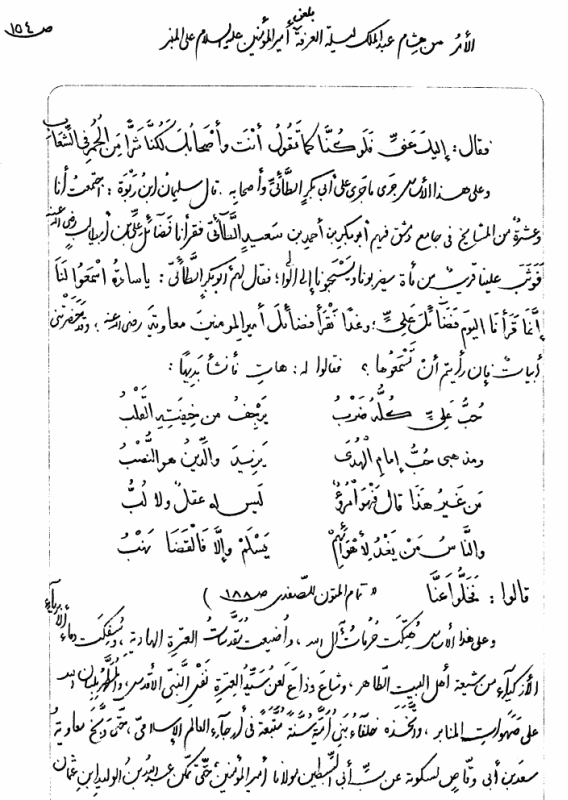 ص ١٥٤
الأمر من هشام عبد الملك ليلة العرفة بلعن أمير المؤمنين عليه السلام على المنبر
فقال: إليك عني فلو كنا كما تقول أنت وأصحابك لكنا شرا من الحمر في الشعاب
وعلى هذا الأساس جرى ما جرى على أبي بكر الطائي وأصحابه. قال سليمان ابن ربوة: اجتمعت أنا
وعشرة من المشايخ في جامع دمشق فيهم أبو بكر بن أحمد بن سعيد الطائي فقرأنا فضائل علي بن أبي طالب رضي الله عنه
فوثب علينا قريب من مأة يضربوننا ويسحبوننا إلى الوالي؛ فقال لهم أبو بكر الطائي: يا سادة اسمعوا لنا
إنما قرأنا اليوم فضائل علي؛ وغدا نقرأ فضائل أمير المومنين معاوية رضي الله عنه؛ وقد حضرتني
أبيات فإن رأيتم أن تسمعوها؟ فقالوا له: هات فأنشأ بديها:
حب علي كله ضرب يرجف من خيفته القلب
ومذهبي حب إمام الهدى يزيد والدين هو النصب
من غير هذا قال فهو امرؤ ليس له عقل ولا لب
والناس من يغد لأهوائهم يسلم وإلا فالقضا نهب
قالوا: فخلوا عنا « تمام المتون للصفدي ص ١٨٨ )
وعلى هذا الأساس هتكت حرمات آل الله، وأضيعت مقدسات العترة الهادية، وسفكت دماء الأبرياء
الأزكياء من شيعة أهل البيت الطاهر، وشاع وذاع لعن سيد العترة نفس النبي الأقدس، والمطهر بلسان الله
على صهوات المنابر، واتخذه خلفاء بني أمية سنة متبعة في أرجاء العالم الإسلامي، حتى وبخ معاوية
سعد بن أبي وقاص لسكوته عن سب أبي السبطين مولانا أمير المؤمنين حتى تمكن عبد الله بن الوليد ابن عثمان